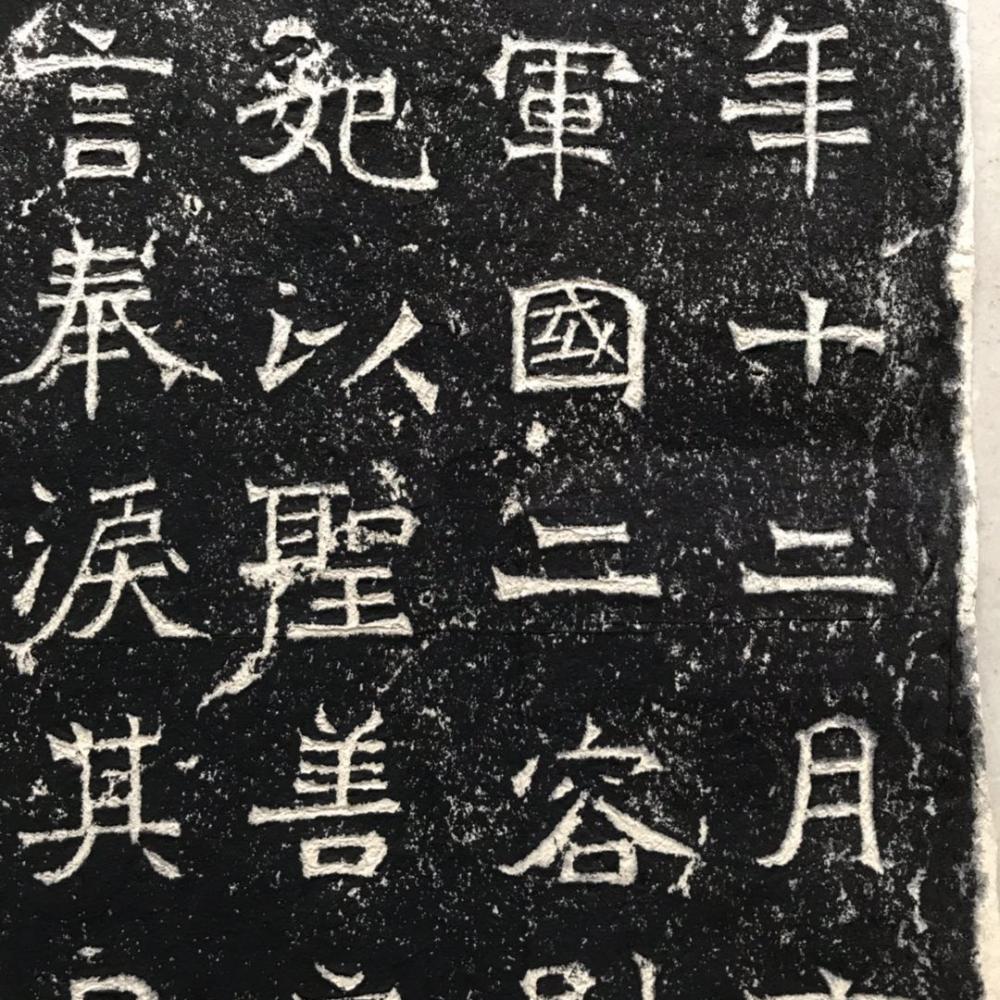 年十二月
軍國二容
以聖善
言奉淚其